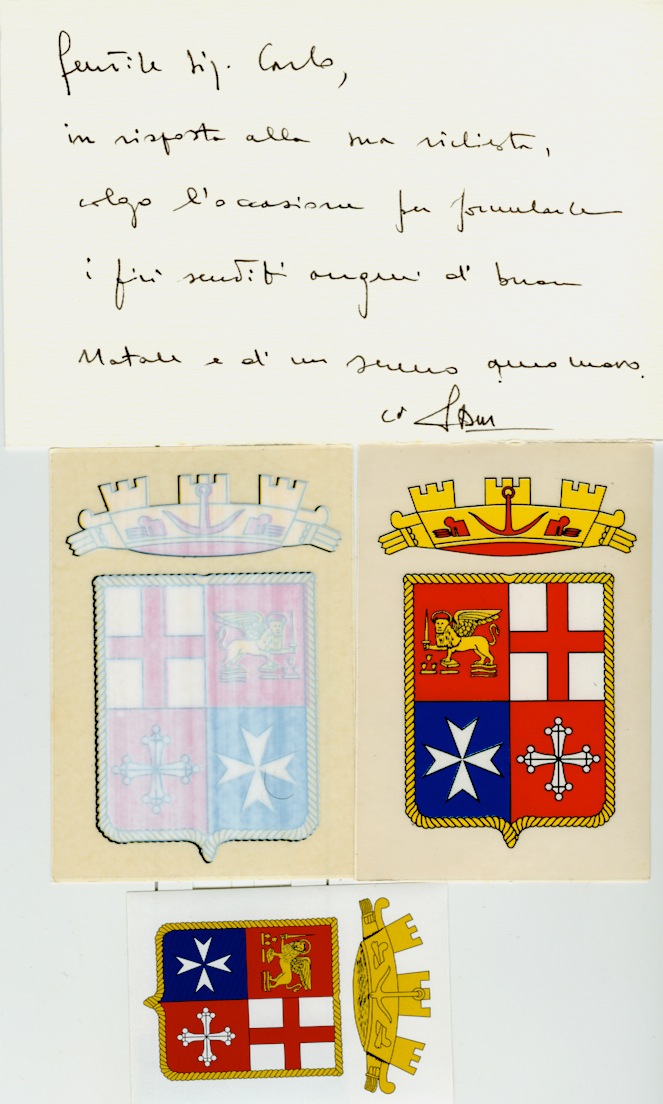 Gentile Sig. Carlo,
in risposta alla sua richiesta,
colgo l'occasione per formularLe
i più sentiti auguri di buon
Natale e di un sereno anno nuovo.